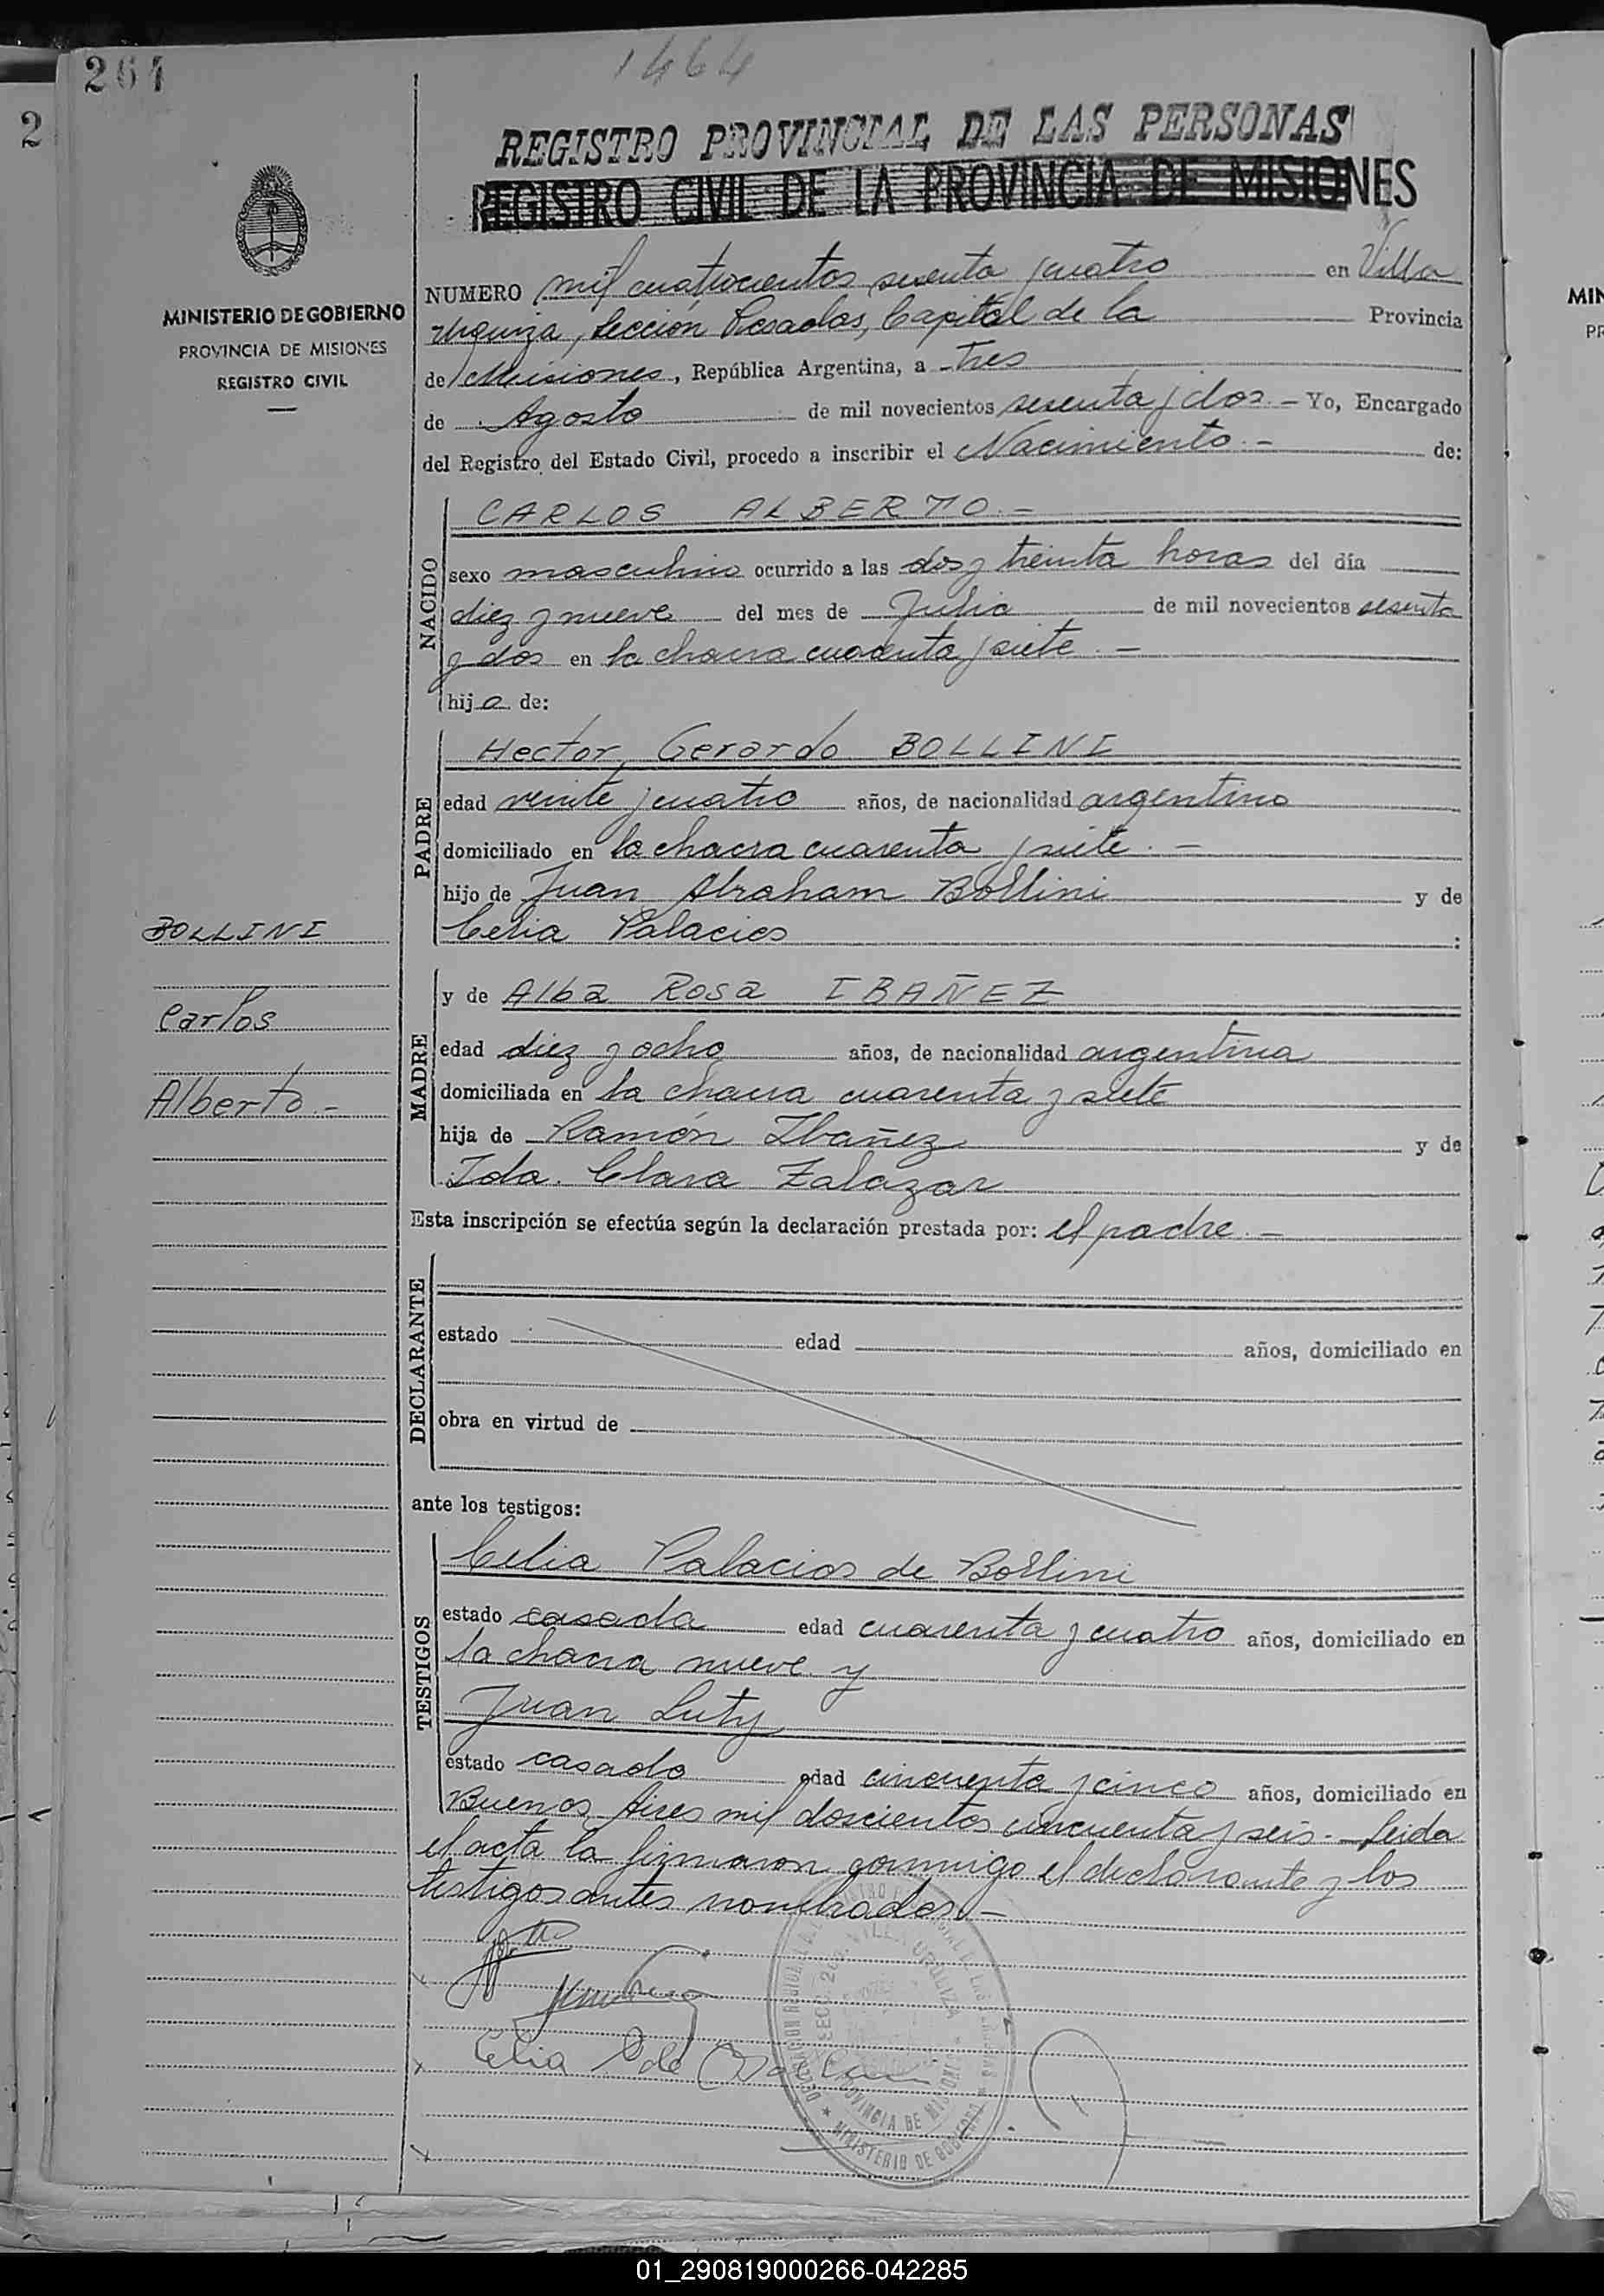 264
1464
2
REGISTRO PROVINCIAL DE LAS PERSONAS
REGISTRO CIVIL DE LA PROVINCIA DE MISIONES
MINISTERIO DE GOBIERNO
PROVINCIA DE MISIONES
REGISTRO CIVIL
NUMERO mil cuatrocientos sesenta y cuatro en Villa
Urquiza, Sección Posadas, Capital de la Provincia
de Misiones, República Argentina, a tres
de Agosto de mil novecientos sesenta y dos - Yo, Encargado
del Registro del Estado Civil, procedo a inscribir el Nacimiento.- de:
NACIDO
CARLOS ALBERTO.-
sexo masculino ocurrido a las dos y treinta horas del día
diez y nueve del mes de Julio de mil novecientos sesenta
y dos en la chacra cuarenta y siete.-
hijo de:
PADRE
Hector Gerardo BOLLINI
edad veinte y cuatro años, de nacionalidad argentino
domiciliado en la chacra cuarenta y siete.-
hijo de Juan Abraham Bollini y de
Celia Palacios :
BOLLINI
Carlos
Alberto.-
MADRE
y de Alba Rosa IBAÑEZ
edad diez y ocho años, de nacionalidad argentina
domiciliada en la chacra cuarenta y siete
hija de Ramón Ibañez y de
Ida. Clara Zalazar
Esta inscripción se efectúa según la declaración prestada por: el padre.-
DECLARANTE
estado edad años, domiciliado en
obra en virtud de
ante los testigos:
TESTIGOS
Celia Palacios de Bollini
estado casada edad cuarenta y cuatro años, domiciliado en
la chacra nueve y
Juan Luty
estado casado edad cincuenta y cinco años, domiciliado en
Buenos Aires mil doscientos cincuenta y seis.- Leida
el acta la firmaron conmigo el declarante y los
testigos antes nombrados.-
Celia P de Bollini
SECC. 2da. VILLA URQUIZA
PROVINCIA DE MISIONES
MINISTERIO DE GOBIERNO
MIN
PR
01_290819000266-042285